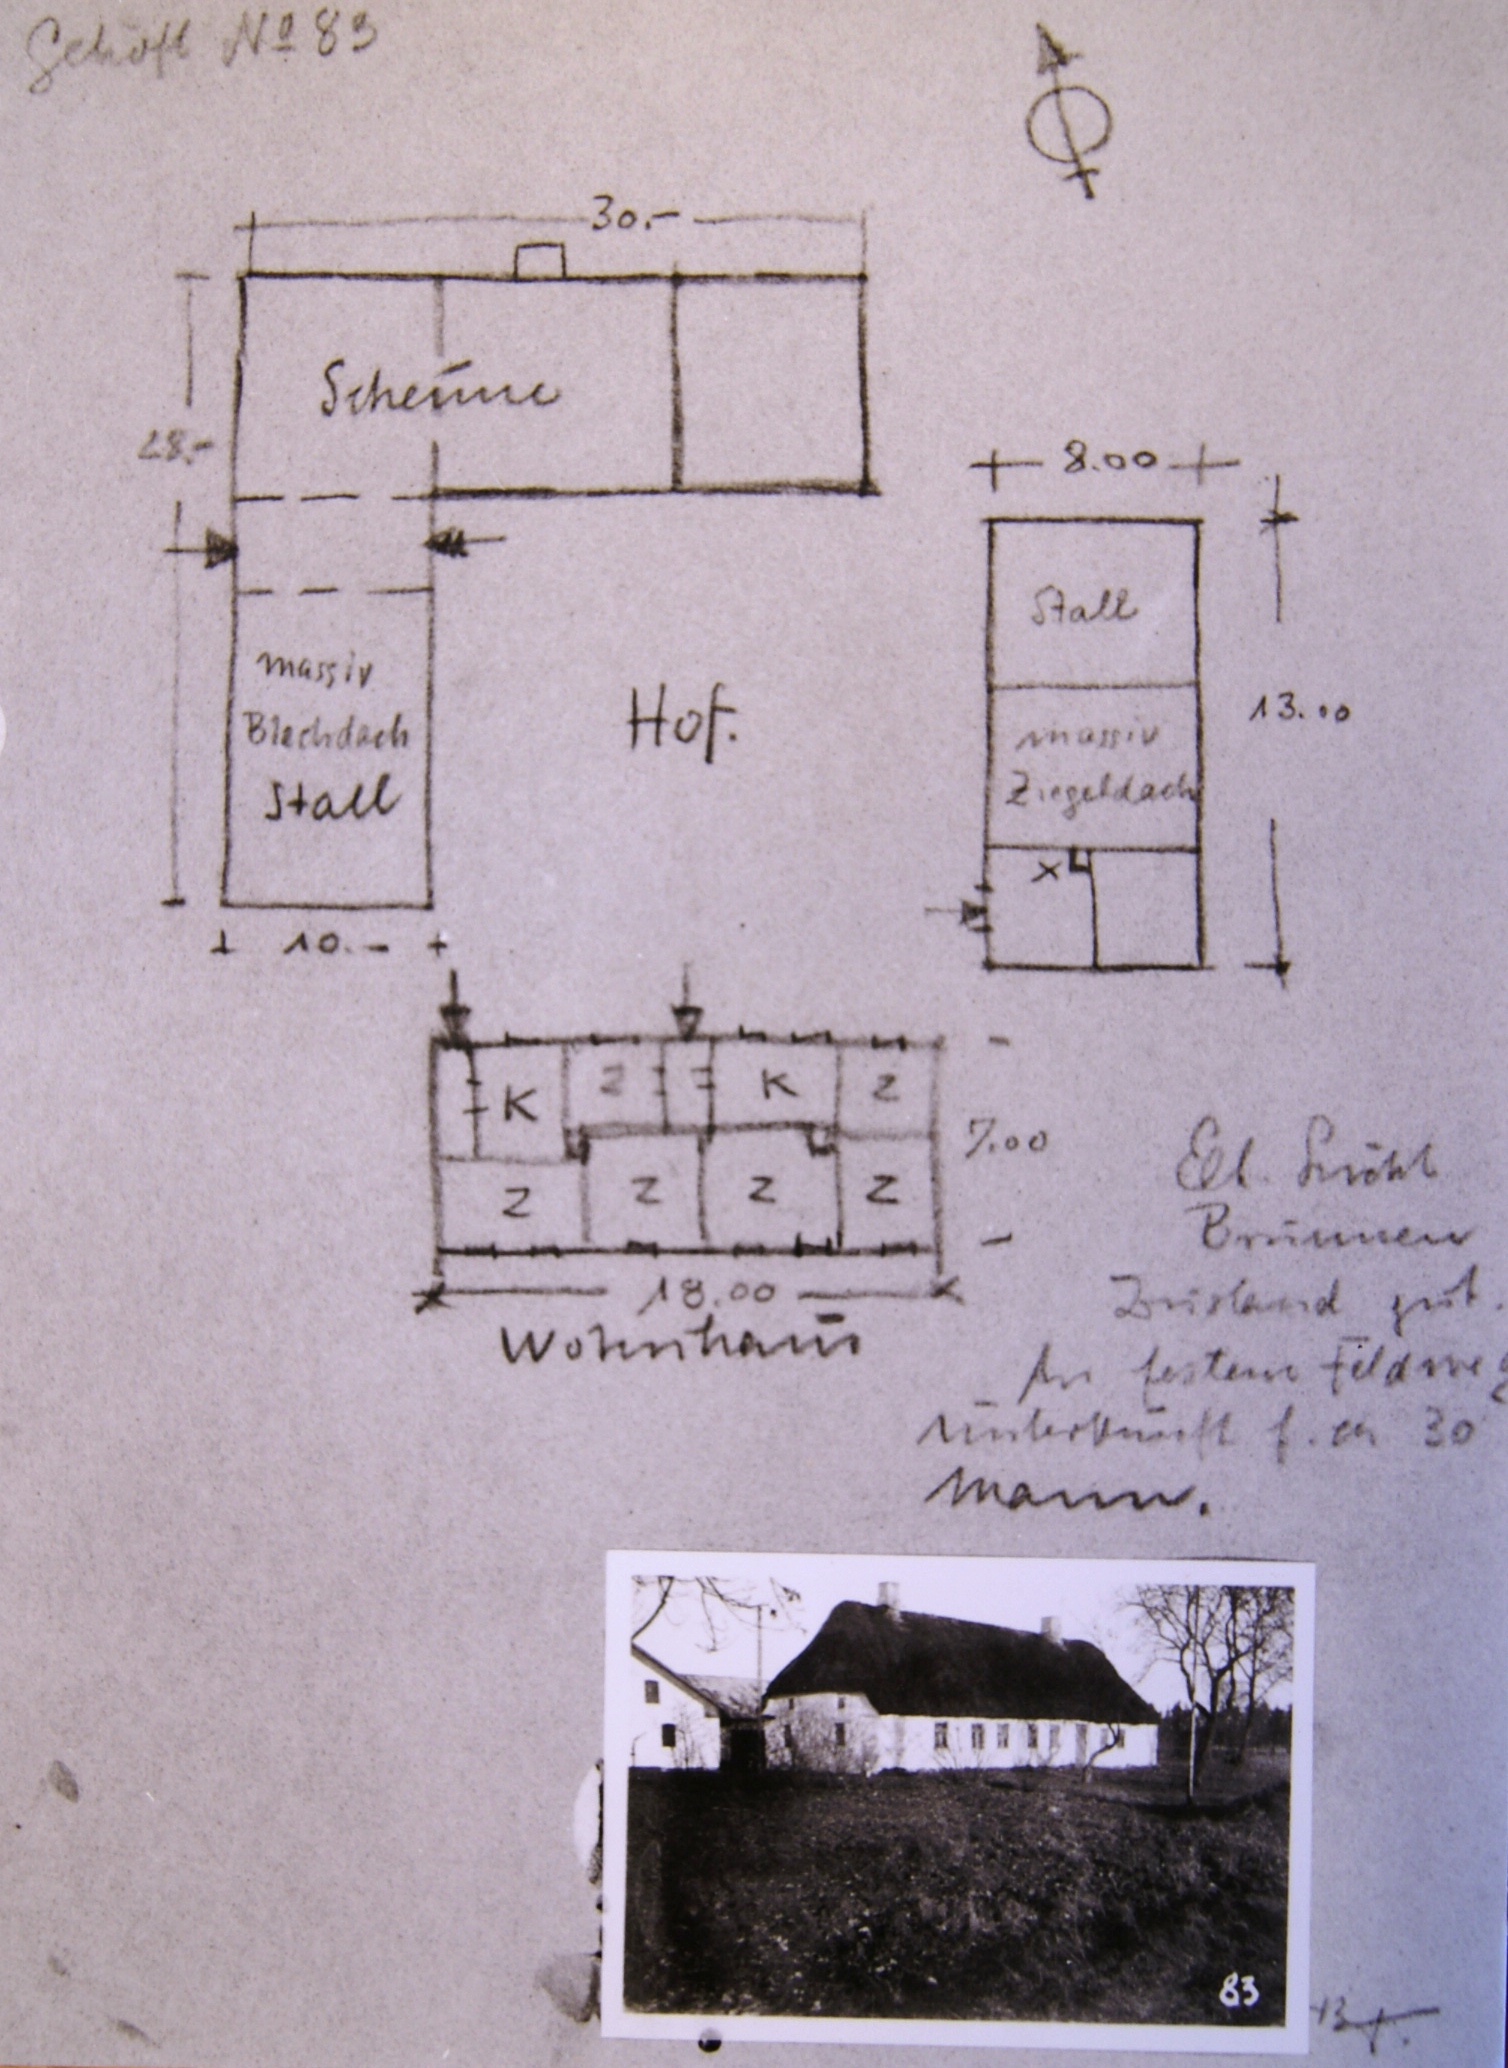 Gehöft No 83
30.-
Scheune
28.-
8.00
Stall
massiv
Blechdach
Stall
Hof.
13.00
massiv
Ziegeldach
x
10.-
K Z K Z
7.00
Z Z Z Z
18.00
Wohnhaus
El.
Brunnen
Zustand gut.
An festem Feldweg
Unterkunft f. ca 30
Mann.
83